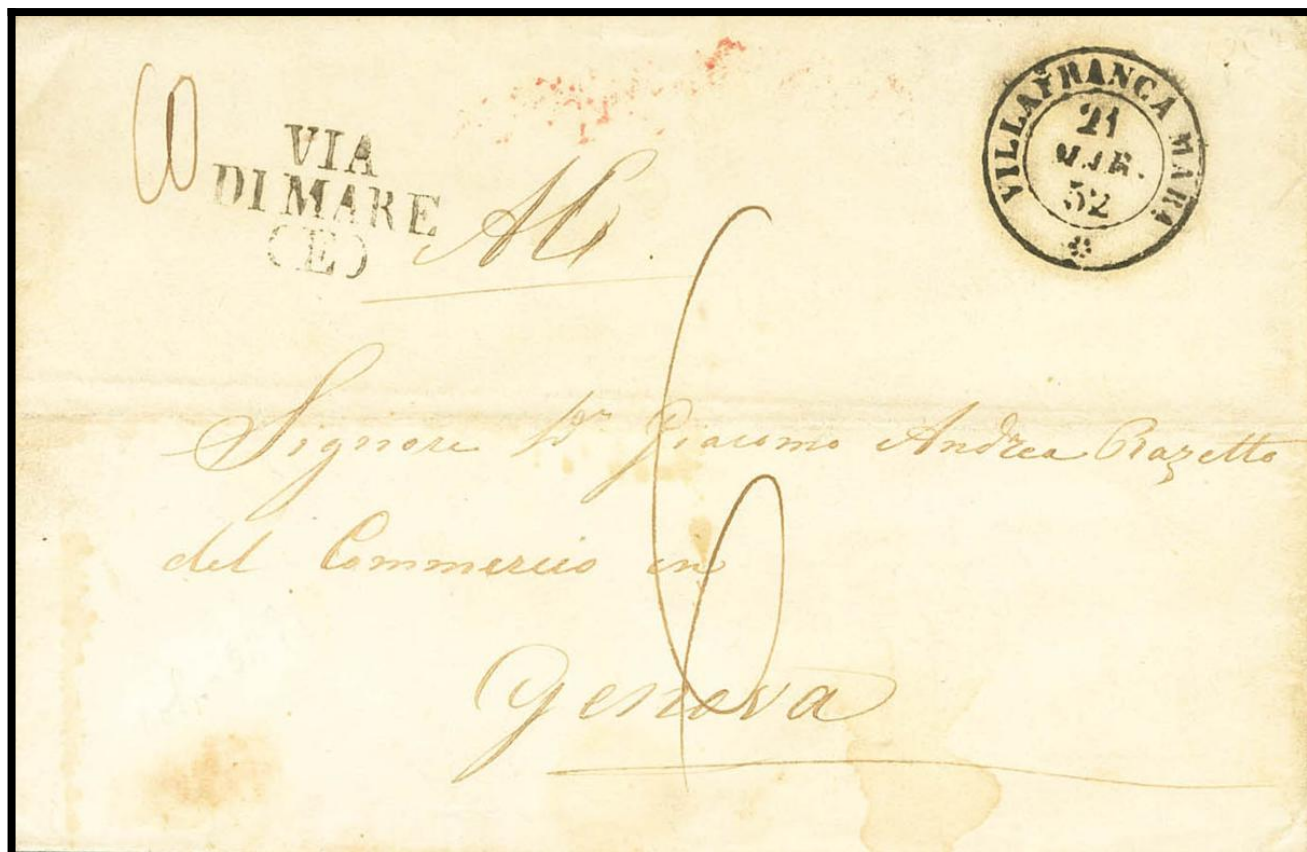 VIA
DI MARE
(E)
VILLAFRANCA MARA
21
MAR.
52
Al
6
Signore Dn Giacomo Andrea Razetto
del Commercio in
Genova